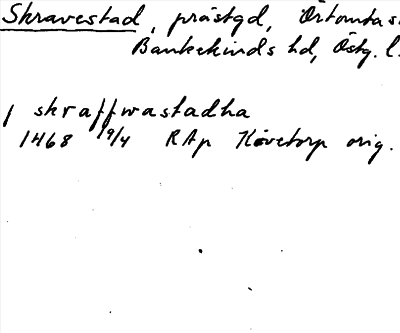 Skravestad, prästgd, Örtomta s
Bankekinds hd, Östg. l.
j skraffwastadha
1468 19/4 RAp Hövetorp orig.